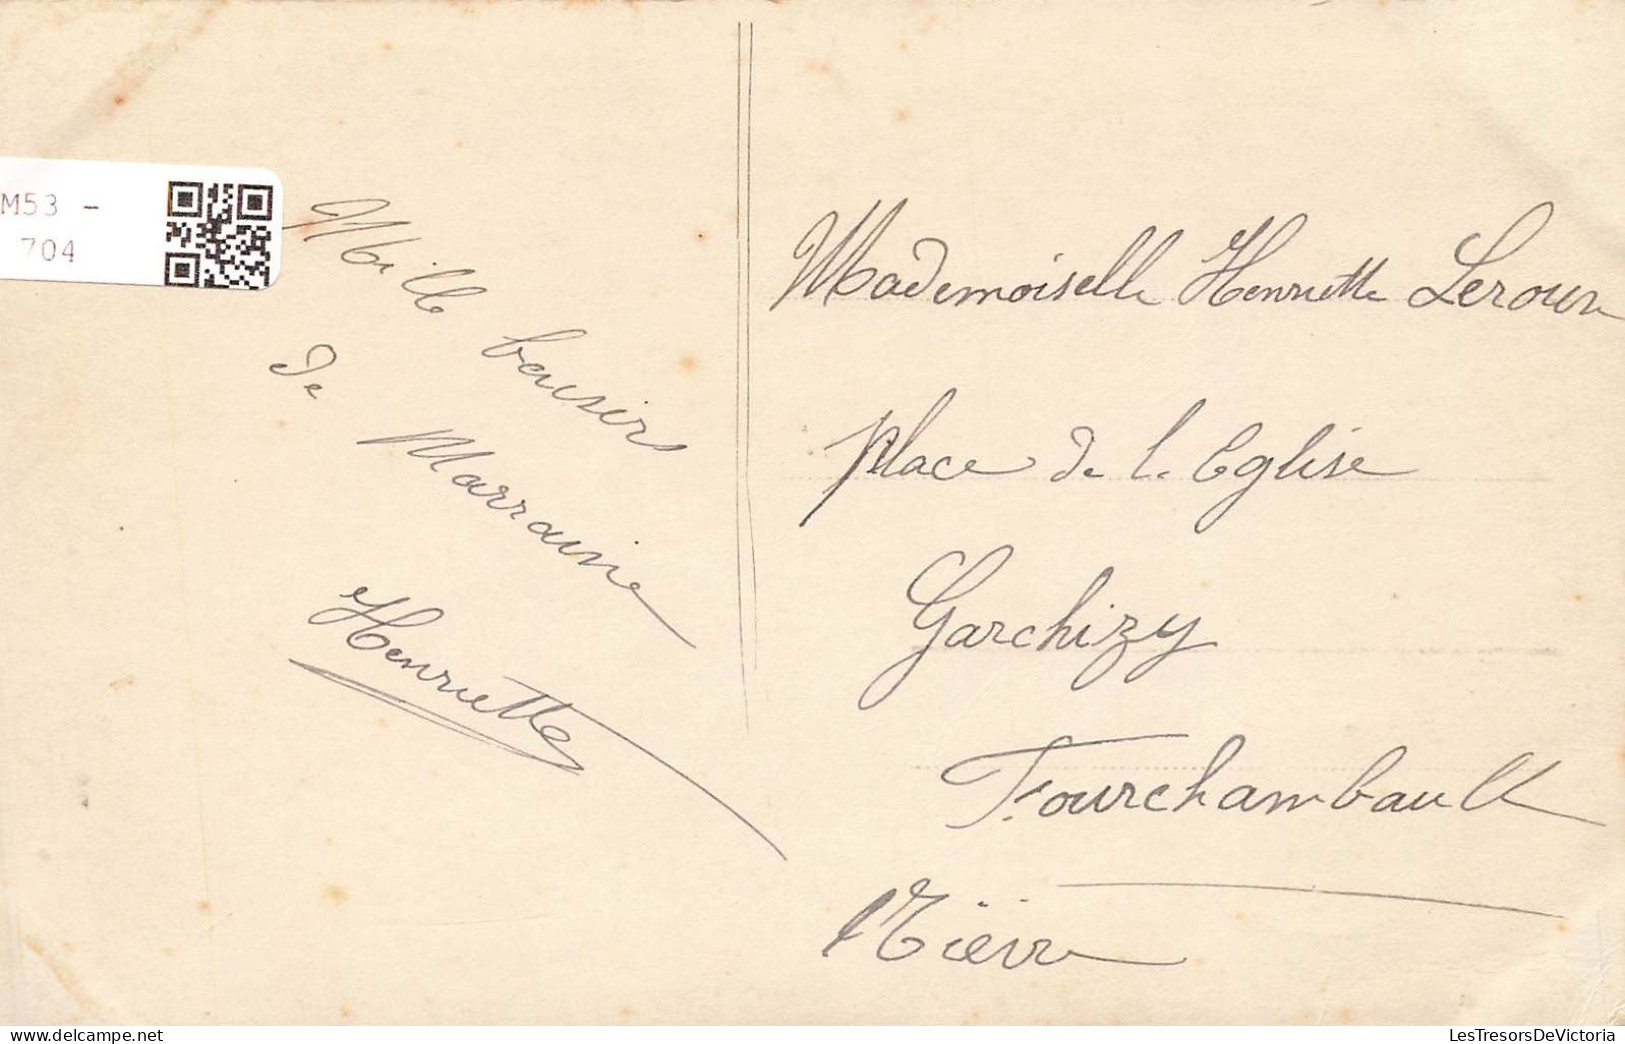 M53 -
704
Mille bensirs
de Marraine
Henriette
Mademoiselle Henriette Leroux
place de l. Eglise
Garchizy
Fourchambault
Nièvre
LesTresorsDeVictoria